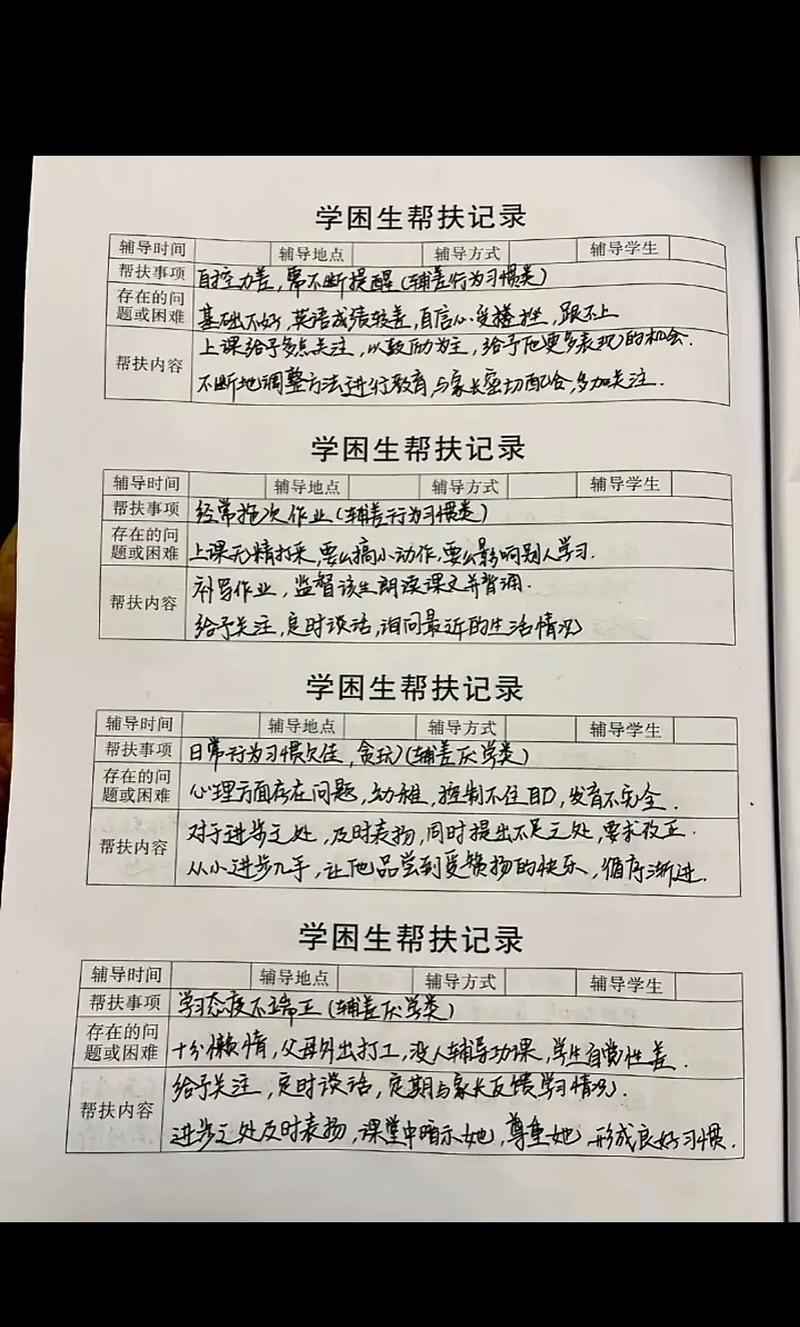 学困生帮扶记录
辅导时间 辅导地点 辅导方式 辅导学生
帮扶事项 自控力差，需不断提醒(辅差行为习惯类)
存在的问题或困难 基础不好，英语成绩较差，自信心受挫，跟不上
帮扶内容 上课给予多点关注，以鼓励为主，给予他更多表现的机会.
不断地调整方法进行教育，与家长密切配合，多加关注.
学困生帮扶记录
辅导时间 辅导地点 辅导方式 辅导学生
帮扶事项 经常拖欠作业(辅差行为习惯类)
存在的问题或困难 上课无精打采，要么搞小动作，要么影响别人学习.
帮扶内容 补写作业，监督该生朗读课文并背诵.
给予关注，定时谈话，询问最近的生活情况
学困生帮扶记录
辅导时间 辅导地点 辅导方式 辅导学生
帮扶事项 日常行为习惯欠佳，贪玩(辅差厌学类)
存在的问题或困难 心理方面存在问题，幼稚，控制不住自己，发育不完全.
帮扶内容 对于进步之处，及时表扬，同时提出不足之处，要求改正.
从小进步入手，让他品尝到受赞扬的快乐，循序渐进.
学困生帮扶记录
辅导时间 辅导地点 辅导方式 辅导学生
帮扶事项 学习态度不端正(辅差厌学类)
存在的问题或困难 十分懒惰，父母外出打工，没人辅导功课，学生自觉性差.
帮扶内容 给予关注，定时谈话，定期与家长反馈学习情况.
进步之处及时表扬，课堂中暗示她，尊重她，形成良好习惯.